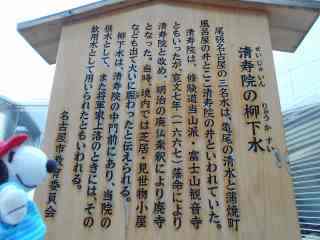 清寿院の柳下水
せいじゅいん
りゅうかすい
尾張名古屋の三名水は、亀尾の清水と蒲焼町
風呂屋の井とここ清寿院の井といわれていた。
清寿院は、修験道当山派・富士山観音寺
ともいったが寛文七年(一六六七)藩命により
清寿院と改め、明治の廃仏棄釈により廃寺
となった。当時、境内では芝居・見世物小屋
なども出て大いに賑わったと伝えられる。
柳下水は、清寿院の中門前にあり、当院の
根水として、また将軍家上洛のときには、その
飲用水として用いられたともいわれる。
名古屋市教育委員会